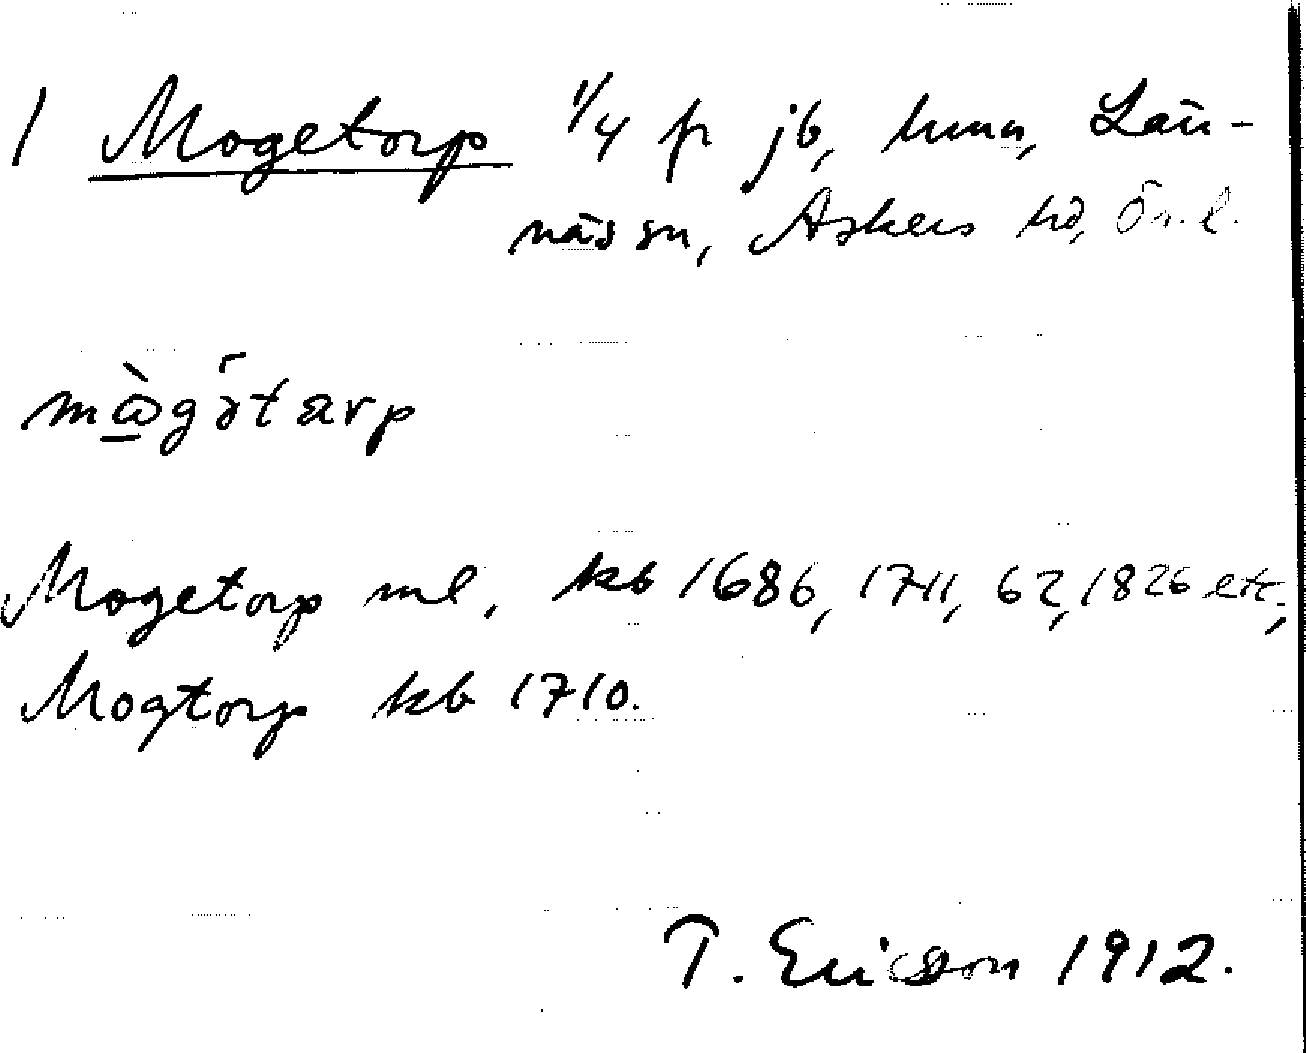 1 Mogetorp 1/4 fr jb, hmn, Län-
näs sn, Askers hd, Ör. l.
mὼgɔ́tarp
Mogetorp ml, kb 1686, 1711, 62, 1826 etc;
Mogtorp kb 1710.
T. Ericsson 1912.